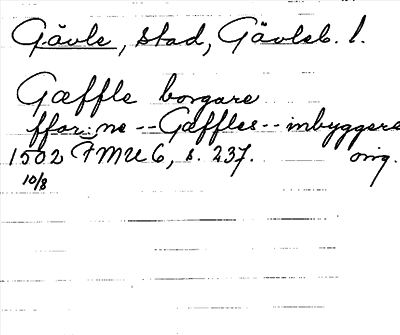 Gävle, stad, Gävleb. l.
Gæffle borgare
ffar:ne -- Gæffles -- inbyggere
1502 FMU 6, s. 237. orig.
10/8